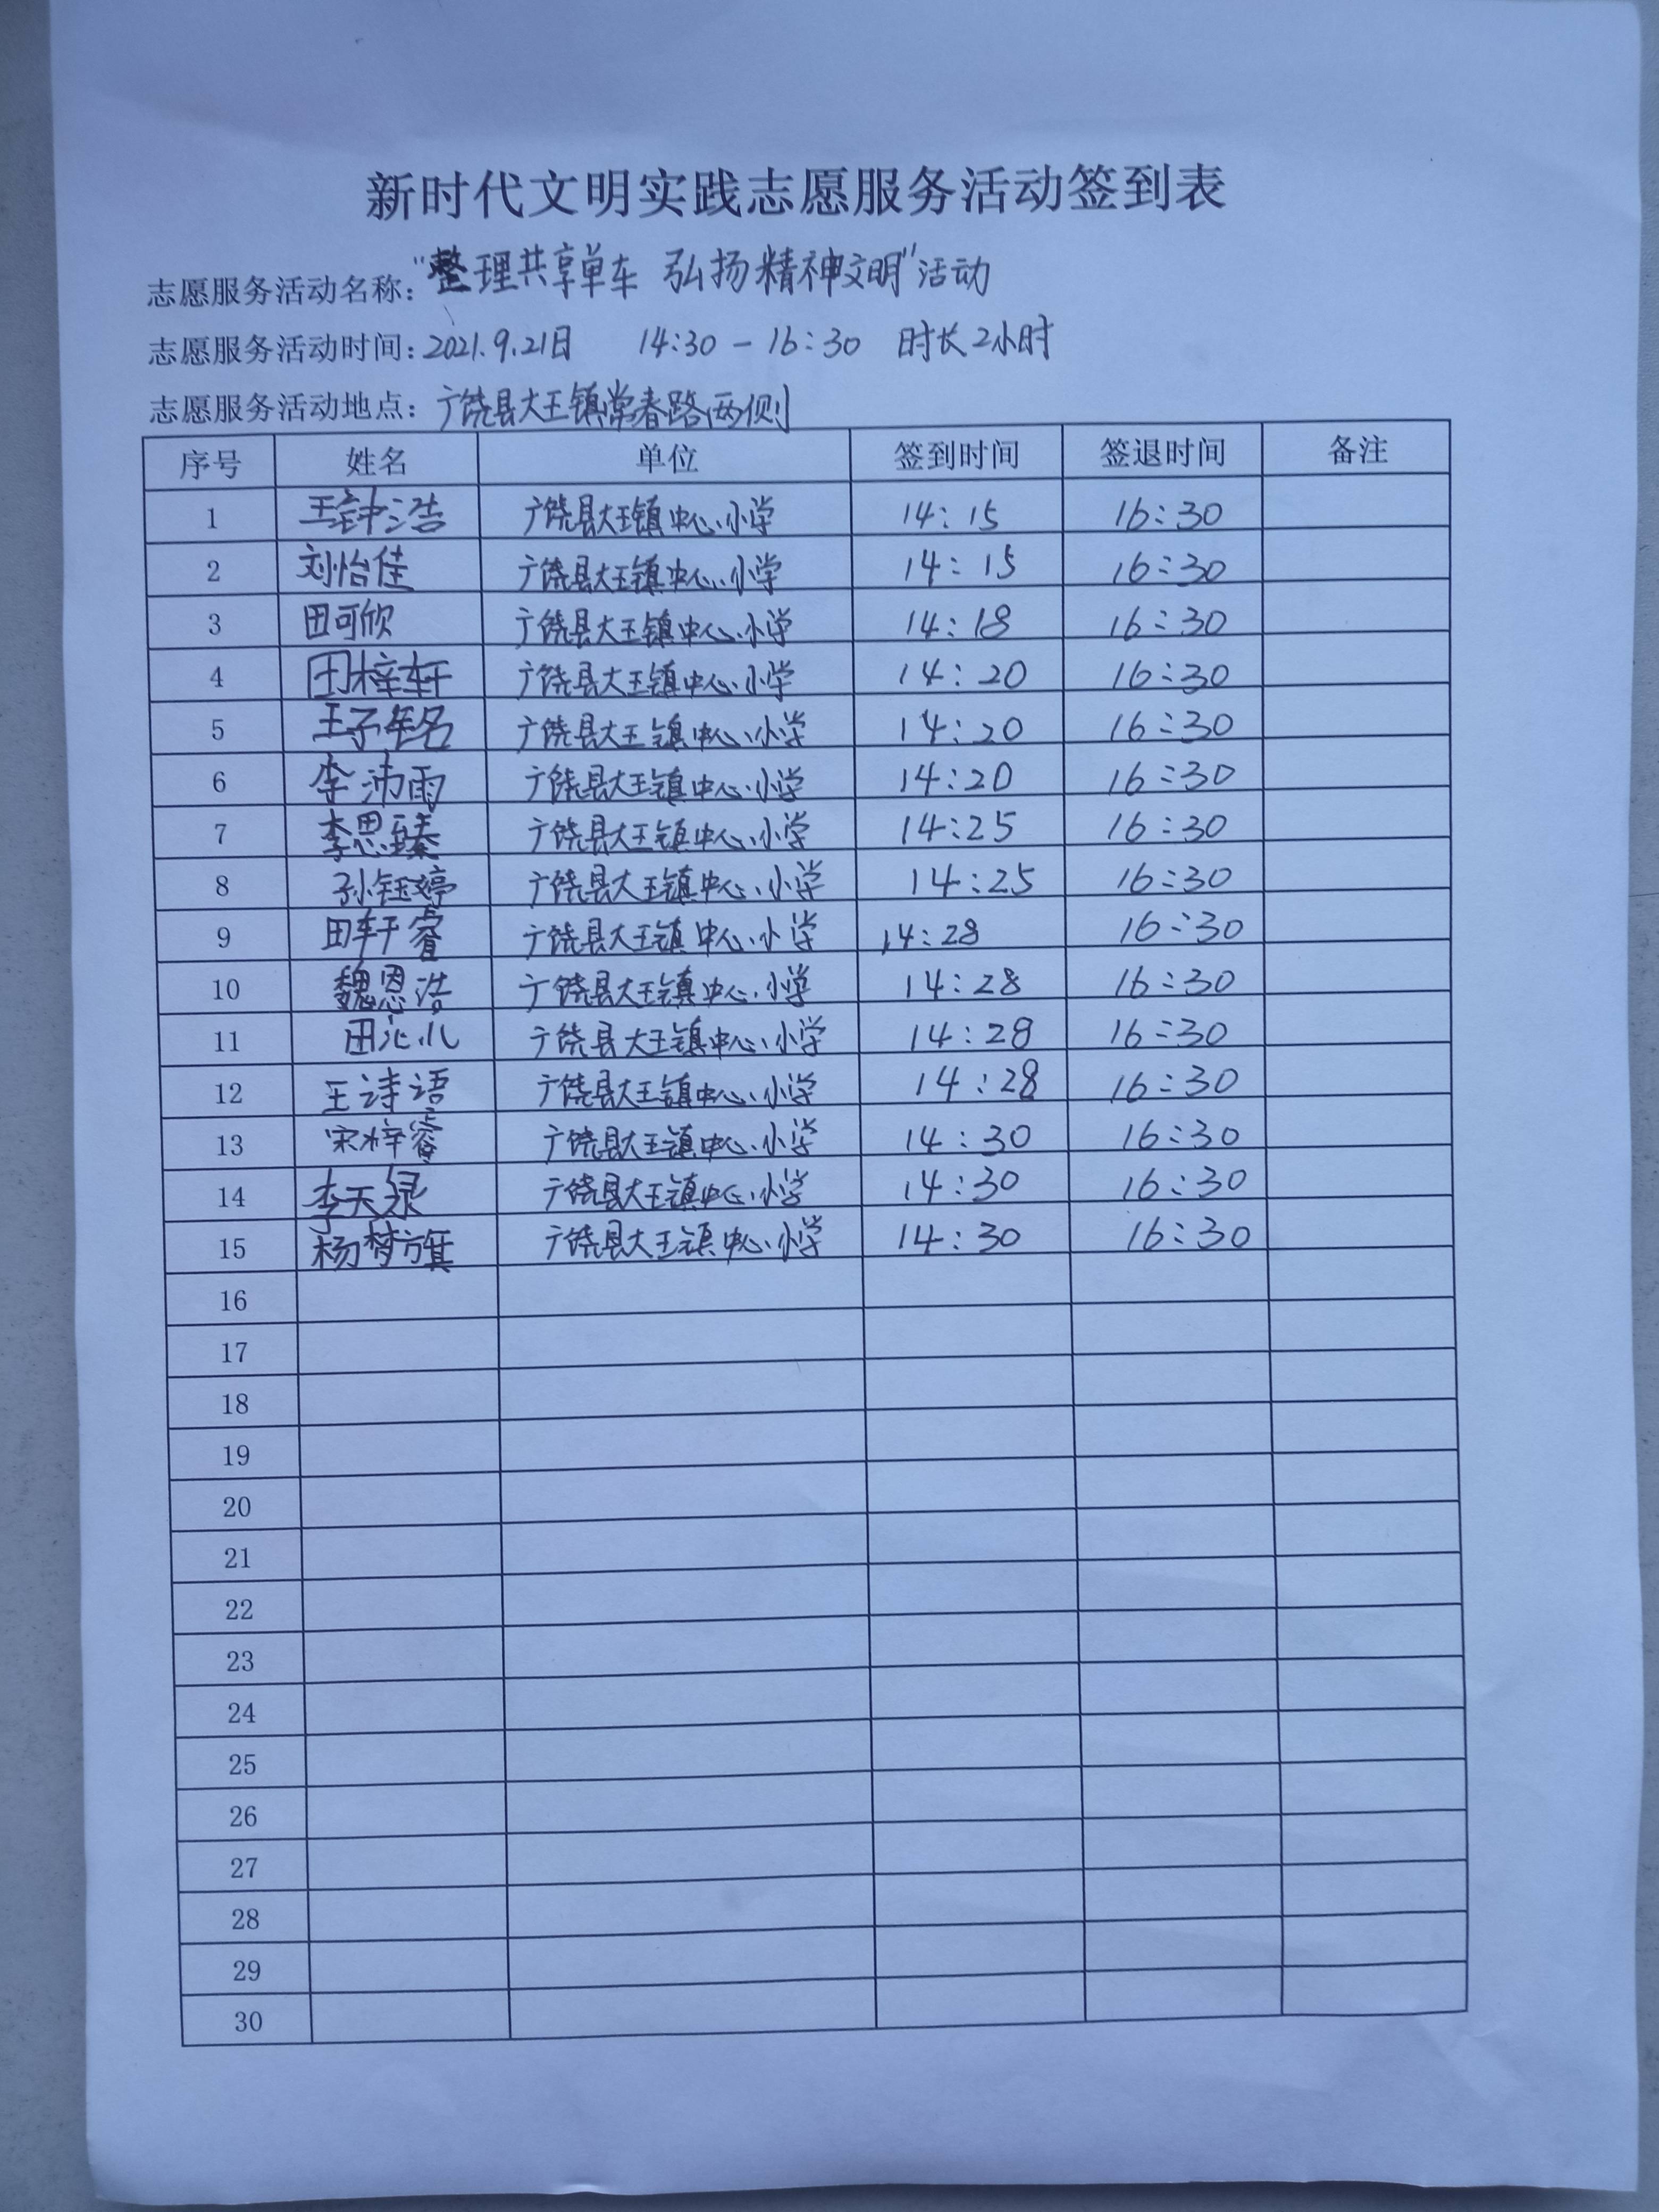 新时代文明实践志愿服务活动签到表
志愿服务活动名称："整理共享单车 弘扬精神文明"活动
志愿服务活动时间：2021.9.21日 14:30-16:30 时长2小时
志愿服务活动地点：广饶县大王镇常春路两侧
序号 姓名 单位 签到时间 签退时间 备注
1 王钟浩 广饶县大王镇中心小学 14:15 16:30
2 刘怡佳 广饶县大王镇中心小学 14:15 16:30
3 田可欣 广饶县大王镇中心小学 14:18 16:30
4 田梓轩 广饶县大王镇中心小学 14:20 16:30
5 王子 广饶县大王镇中心小学 14:20 16:30
6 李沛雨 广饶县大王镇中心小学 14:20 16:30
7 李思臻 广饶县大王镇中心小学 14:25 16:30
8 孙钰婷 广饶县大王镇中心小学 14:25 16:30
9 田轩睿 广饶县大王镇中心小学 14:28 16:30
10 魏恩浩 广饶县大王镇中心小学 14:28 16:30
11 田 广饶县大王镇中心小学 14:28 16:30
12 王诗语 广饶县大王镇中心小学 14:28 16:30
13 宋梓睿 广饶县大王镇中心小学 14:30 16:30
14 李天 广饶县大王镇中心小学 14:30 16:30
15 杨梦旗 广饶县大王镇中心小学 14:30 16:30
16
17
18
19
20
21
22
23
24
25
26
27
28
29
30